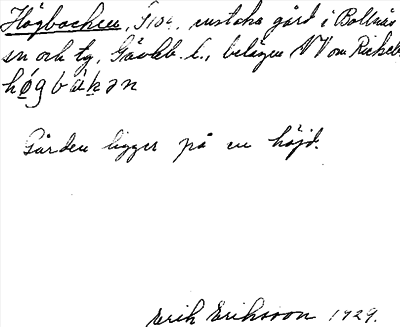 Högbacken, enstaka gård i Bollnäs
sn och tg, Gävleb. l., belägen VV om
högbákan
Gården ligger på en höjd.
Erik Eriksson 1929.